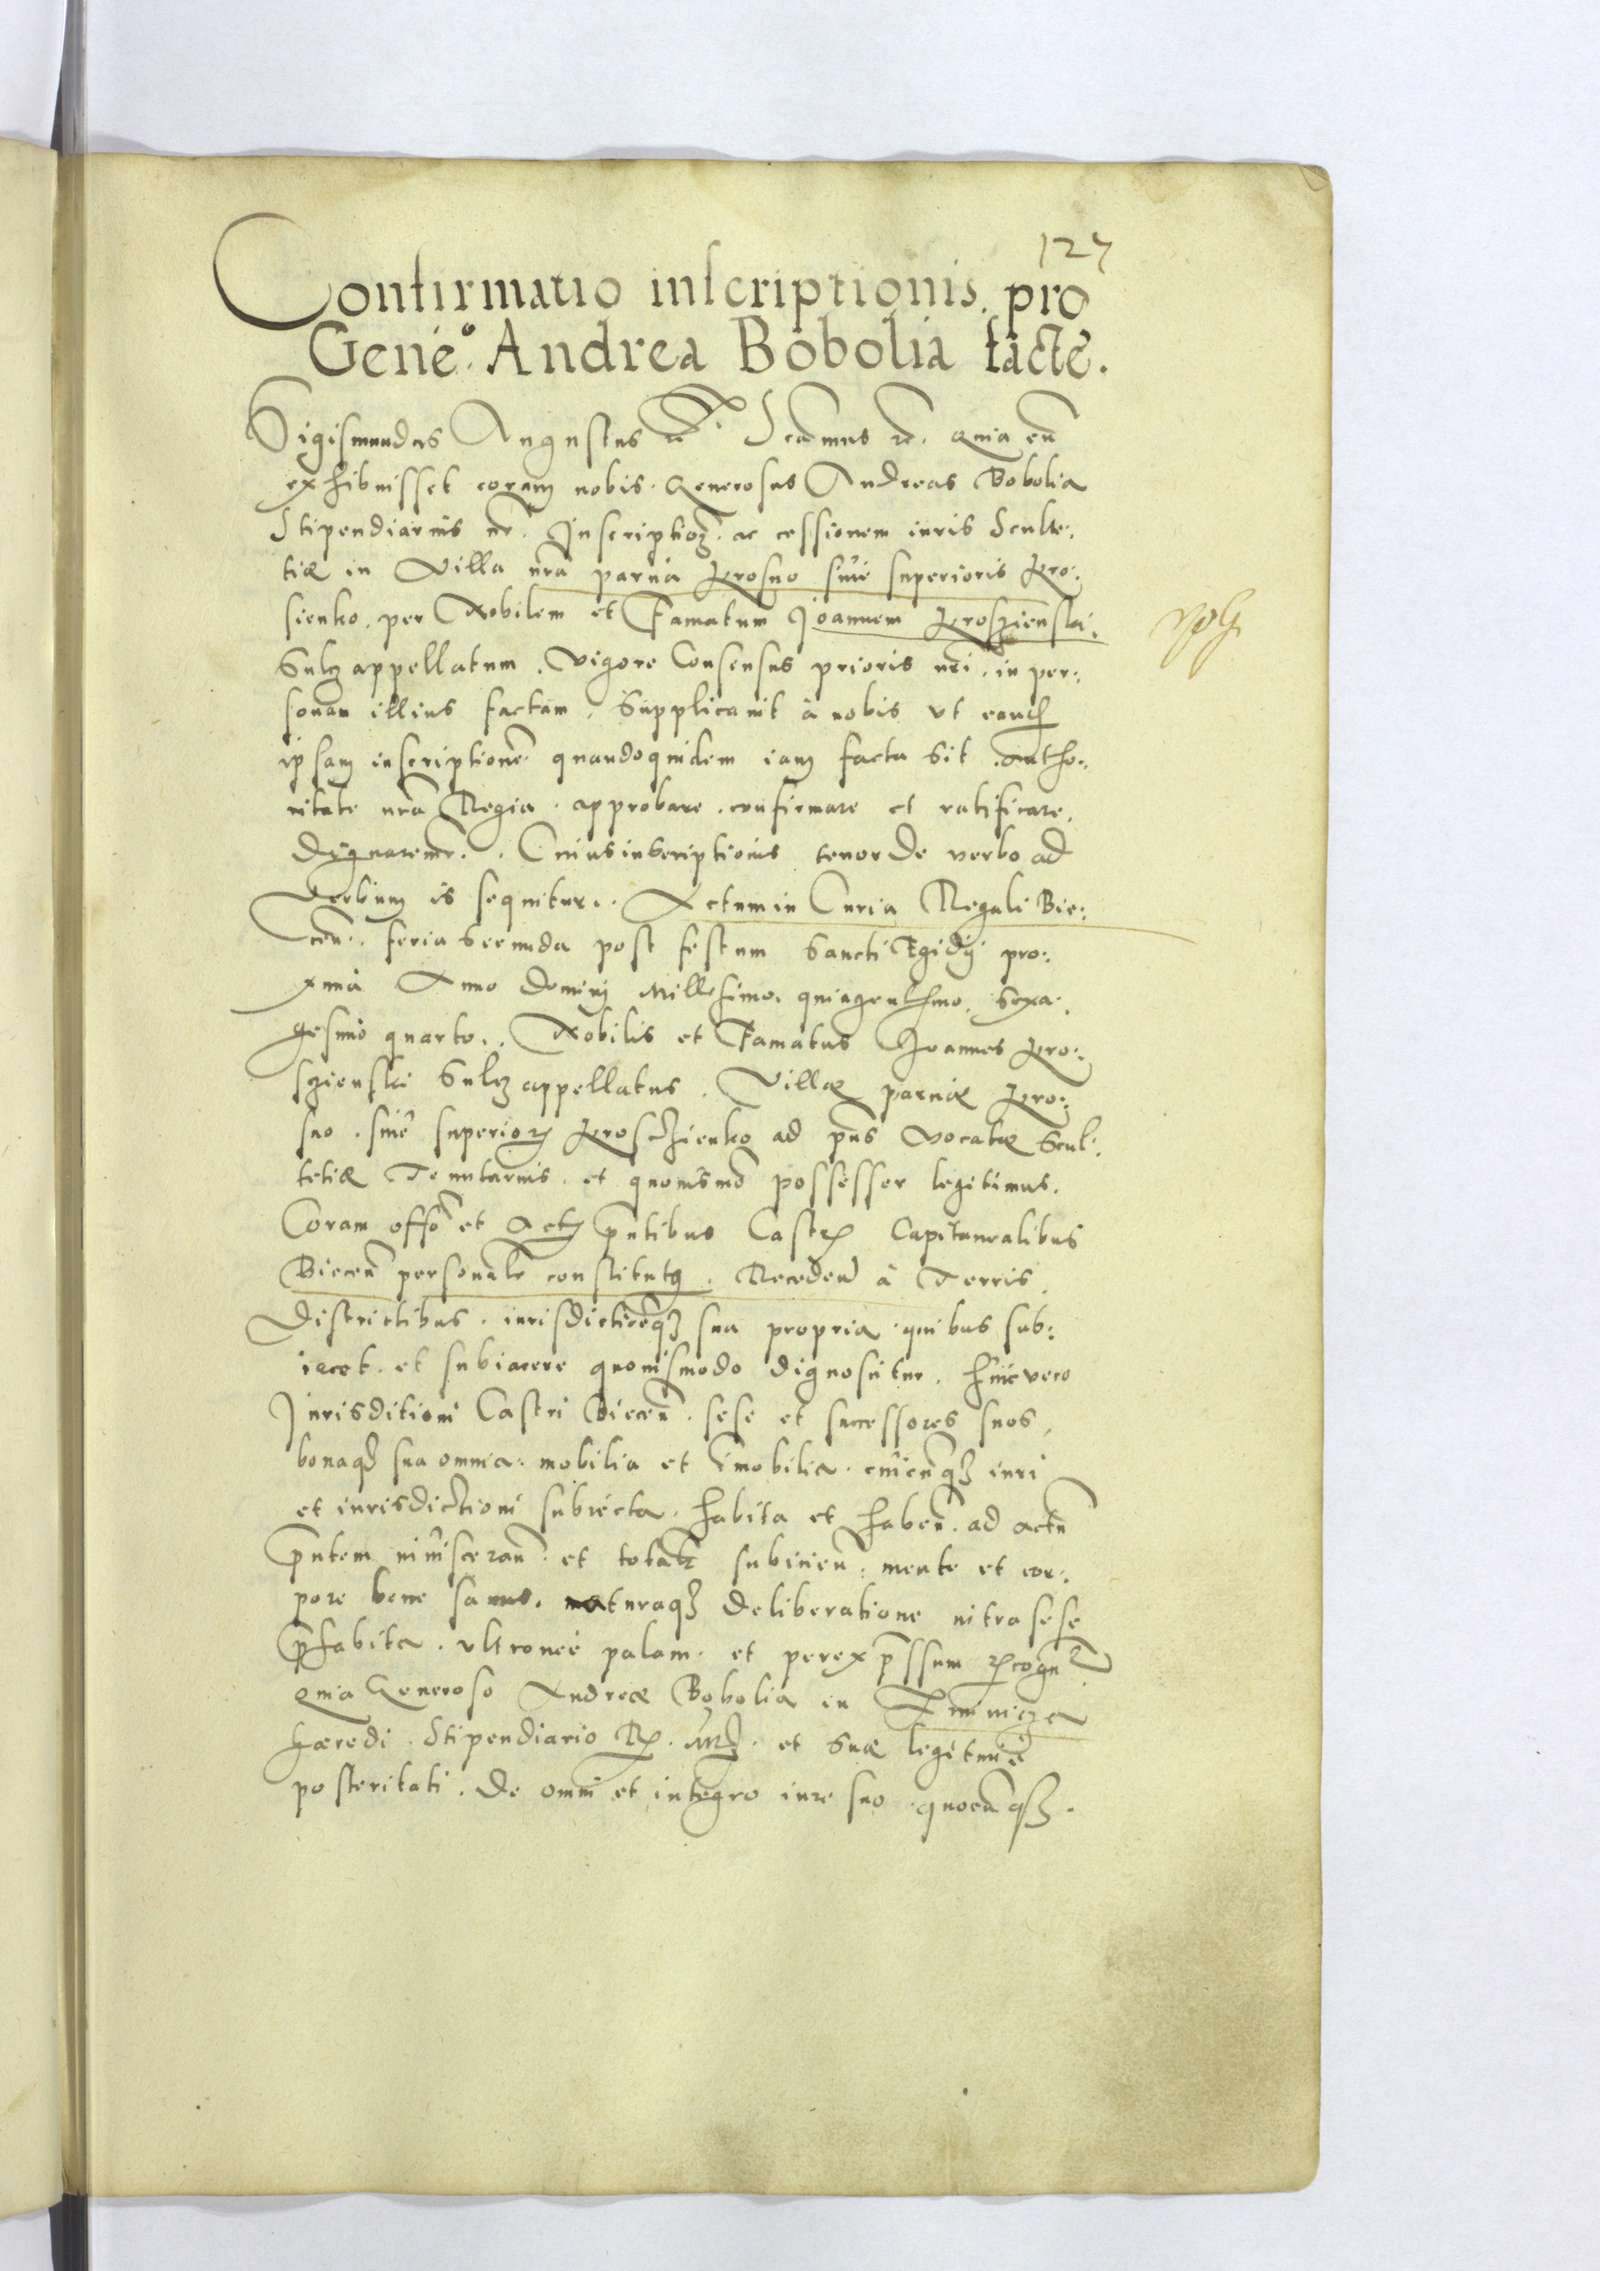 127
Confirmatio inscriptionis pro
Gene͠o Andrea Bobolia facte.
Sigismundus Augustus etc. Scamus etc. Quia cu͠
exhibuisset coram nobis Generosus Andreas Bobolia
Stipendiarius nr͠. Inscriptio͠z ac cessionem iuris Sculte:
tiæ in Villa nr͠a parua Krosno siue superioris Kro:
sienko, per Nobilem et Famatum Joannem Kroszienski,
Sulz appellatum, Vigore Consensus prioris nr͠i, in per:
sonam illius factam. Supplicauit à nobis vt eand͠
ipsam inscriptione͠ quandoquidem iam facta sit, autho:
ritate nr͠a Regia approbare confirmare et ratificare
dignaremr͠. Cuius inscriptionis tenor de verbo ad
verbum is sequitur. Actum in Curia Regali Bie:
cen͠. feria secunda post festum Sancti Egidij pro:
xima Anno Domini Millesimo, quingentesimo, Sexa:
gesimo quarto. Nobilis et Famatus Joannes Kro:
szienski Sulcz appellatus, Villæ paruæ Kro:
sno, siue superior͠ Krosczienko ad pn͠s vocatæ Scul:
tetiæ Tenutarius, et quouismo͠ possessor legitimus,
Coram off͠o et Act͠ pn͠tibus Castr͠ Capitanealibus
Biecen͠ personalr͠ constitut9. Receden͠ à Terris,
Districtibus, iurisdictio͠eq3 sua propria quibus sub:
iacet, et subiacere quouismodo dignoscitur, huic vero
Jurisditioni Castri Biecen͠. sese et successores suos,
bonaq3 sua omnia, mobilia et im͠obilia, cuicu͠q3 iuri
et iurisdictioni subiecta, habita et haben͠. ad actu͠
pn͠tem inuisceran͠. et totalr͠ subiicien͠: mente et cor:
pore bene sanus, maturaq3 deliberatione intra sese
p͠habita, vltroneè palam, et per exp͠ssum recogn͠
Quia Generoso Andreæ Bobolia in
hæredi, Stipendiario R. M. et suæ legitimæ
posteritati. De omni et integro iure suo quocu͠q3